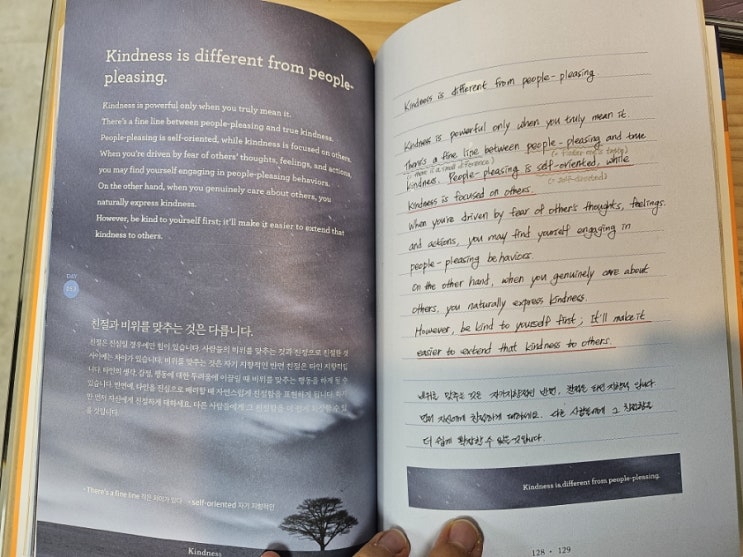 Kindness is different from people-
pleasing.
Kindness is powerful only when you truly mean it.
There's a fine line between people-pleasing and true kindness.
People-pleasing is self-oriented, while kindness is focused on others.
When you're driven by fear of others' thoughts, feelings, and actions,
you may find yourself engaging in people-pleasing behaviors.
On the other hand, when you genuinely care about others, you
naturally express kindness.
However, be kind to yourself first; it'll make it easier to extend that
kindness to others.
DAY
친절과 비위를 맞추는 것은 다릅니다.
친절은 진심일 경우에만 힘이 있습니다. 사람들의 비위를 맞추는 것과 진정으로 친절한 것
사이에는 차이가 있습니다. 비위를 맞추는 것은 자기 지향적인 반면 친절은 타인 지향적입
니다. 타인의 생각, 감정, 행동에 대한 두려움에 이끌릴 때 비위를 맞추는 행동을 하게 될 수
있습니다. 반면에, 타인을 진심으로 배려할 때 자연스럽게 친절함을 표현하게 됩니다. 하지
만 먼저 자신에게 친절하게 대하세요. 다른 사람들에게 그 친절함을 더 쉽게 확장할 수 있
을 것입니다.
· There's a fine line 작은 차이가 있다 · self-oriented 자기 지향적인
Kindness
Kindness is different from people-pleasing.
Kindness is powerful only when you truly mean it.
There's a fine line between people-pleasing and true
kindness. People-pleasing is self-oriented, while
Kindness is focused on others.
When you're driven by fear of other's thoughts, feelings,
and actions, you may find yourself engaging in
people-pleasing behaviors.
On the other hand, when you genuinely care about
others, you naturally express kindness.
However, be kind to yourself first; It'll make it
easier to extend that kindness to others.
비위를 맞추는 것은 자기지향적인 반면, 친절은 타인 지향적입니다
먼저 자신에게 친절하게 대하세요. 다른 사람들에게 그 친절함을
더 쉽게 확장할 수 있을 것입니다.
Kindness is different from people-pleasing.
128 · 129